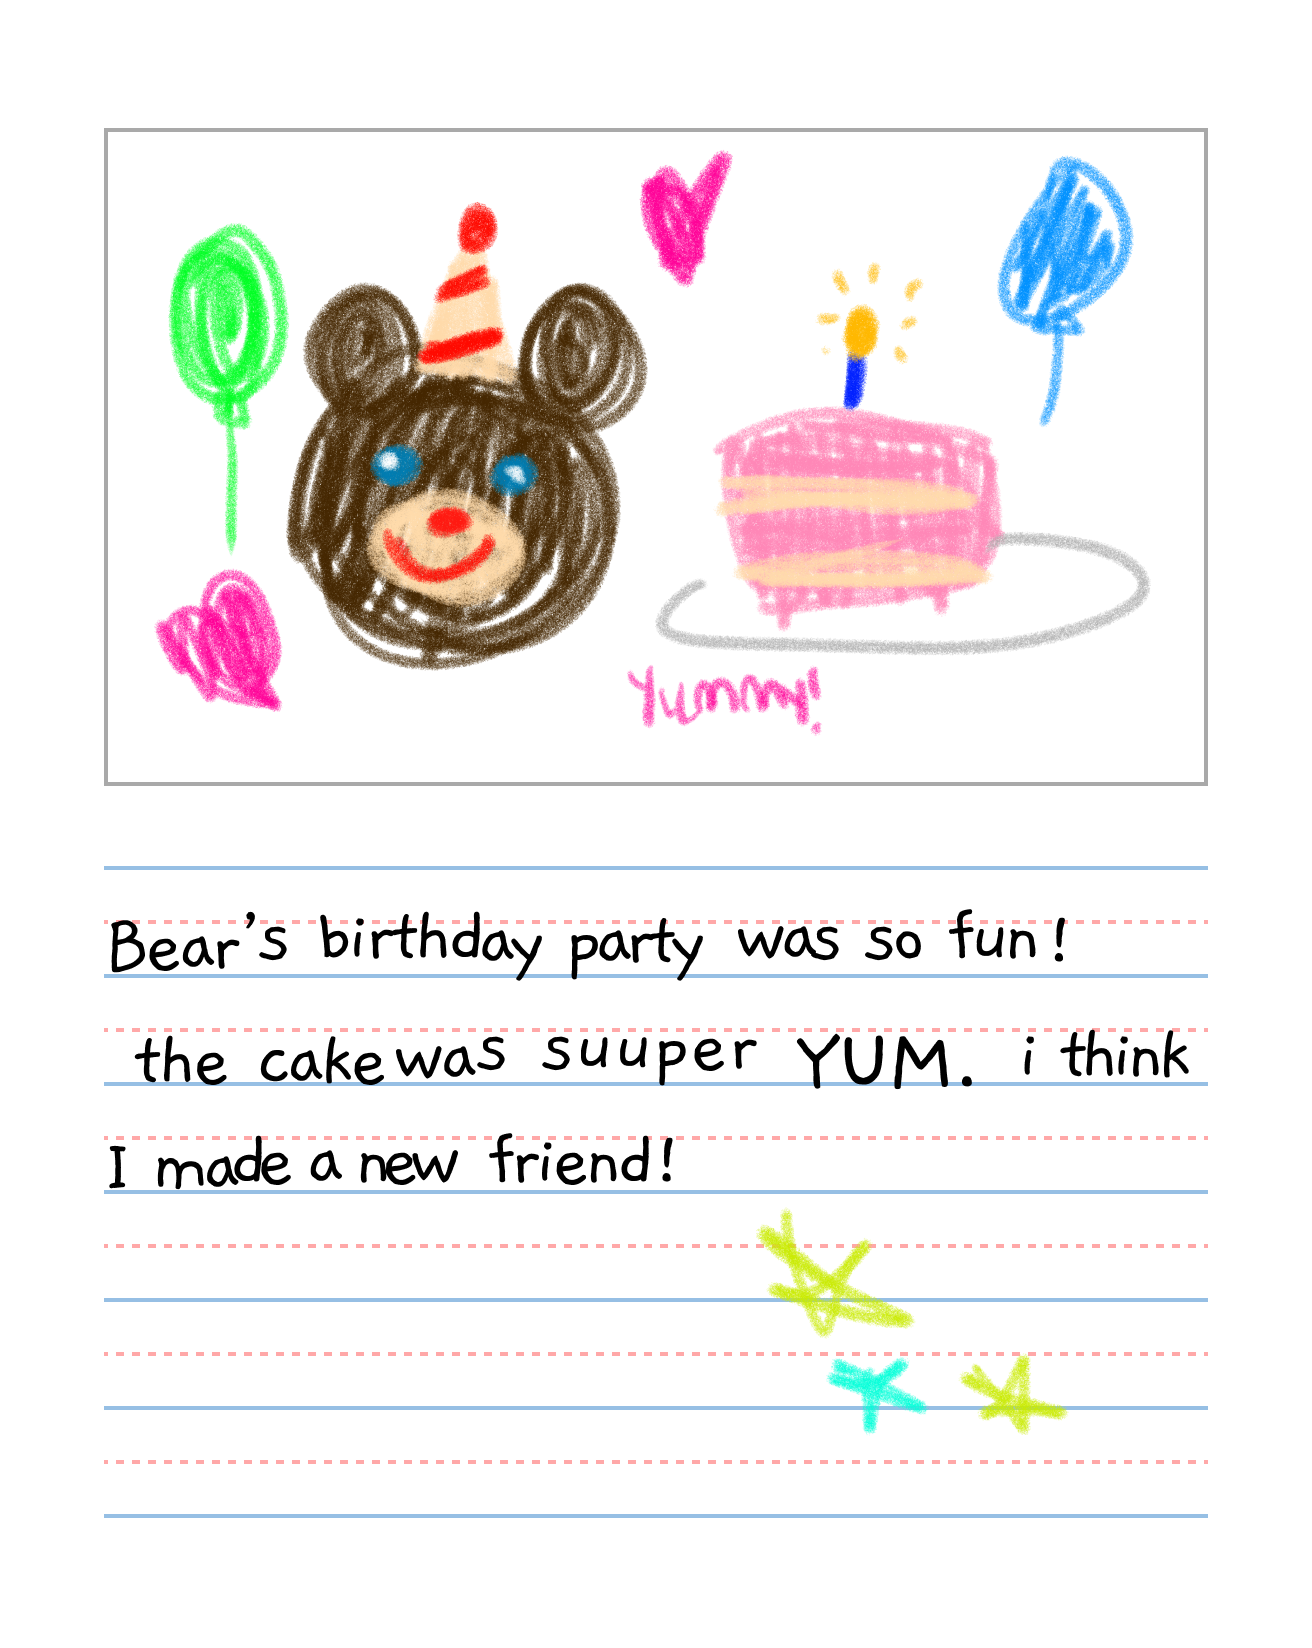 Yummy!
Bear's birthday party was so fun!
the cake was suuper YUM. i think
I made a new friend!